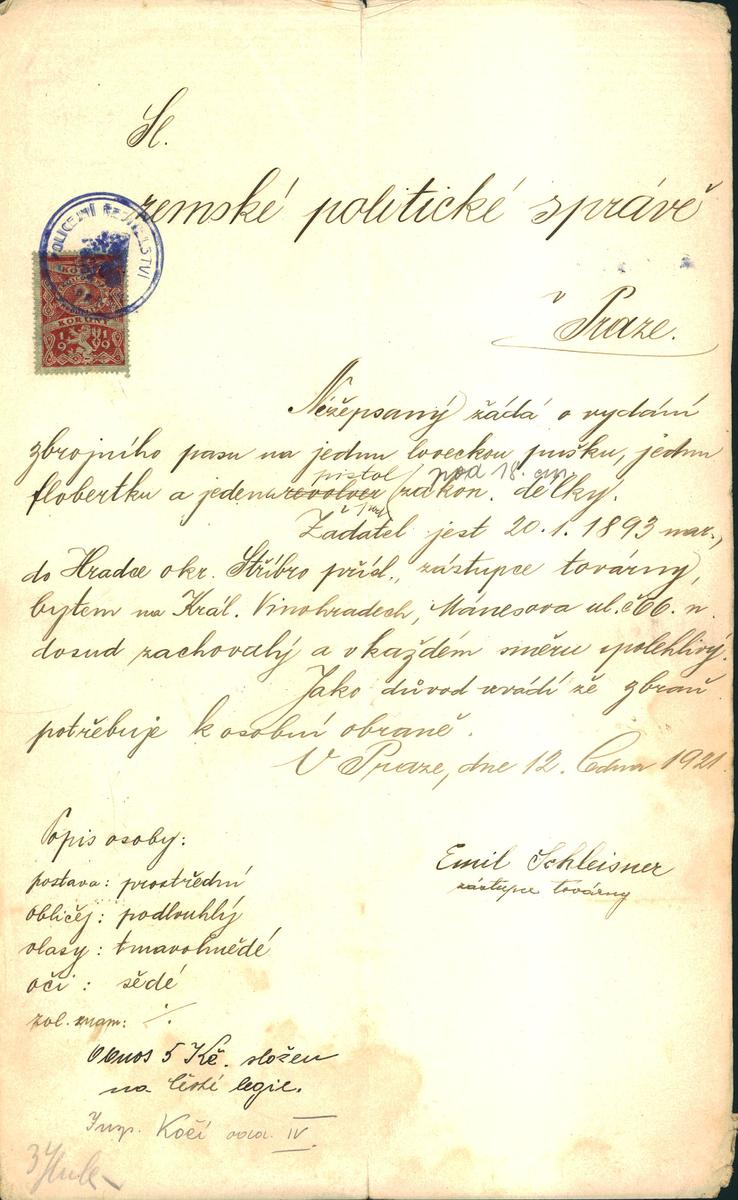 Sl.
zemské politické správě
v Praze.
POLICEJNÍ ŘEDITELSTVÍ
KORUNY
1919
Nížepsaný žádá o vydání
zbrojního pasu na jednu loveckou pušku, jednu
pistol / pod 18. cm.
flobertku a jeden revolver zákon. délky.
Žadatel jest 20.1.1893 nar.,
do Hradce okr. Stříbro přísl., zástupce továrny,
bytem na Král. Vinohradech, Mánesova ul. č 66. n.
dosud zachovalý a v každém směru spolehlivý.
Jako důvod uvádí že zbraň
potřebuje k osobní obraně.
V Praze, dne 12. 1921.
Popis osoby:
Emil Schleisner
zástupce továrny
postava: prostřední
obličej: podlouhlý
vlasy: tmavohnědé
oči: šedé
zvl. znam: ./.
Obnos 5 Kč. složen
na české legie.
Insp. Kočí odd. IV.